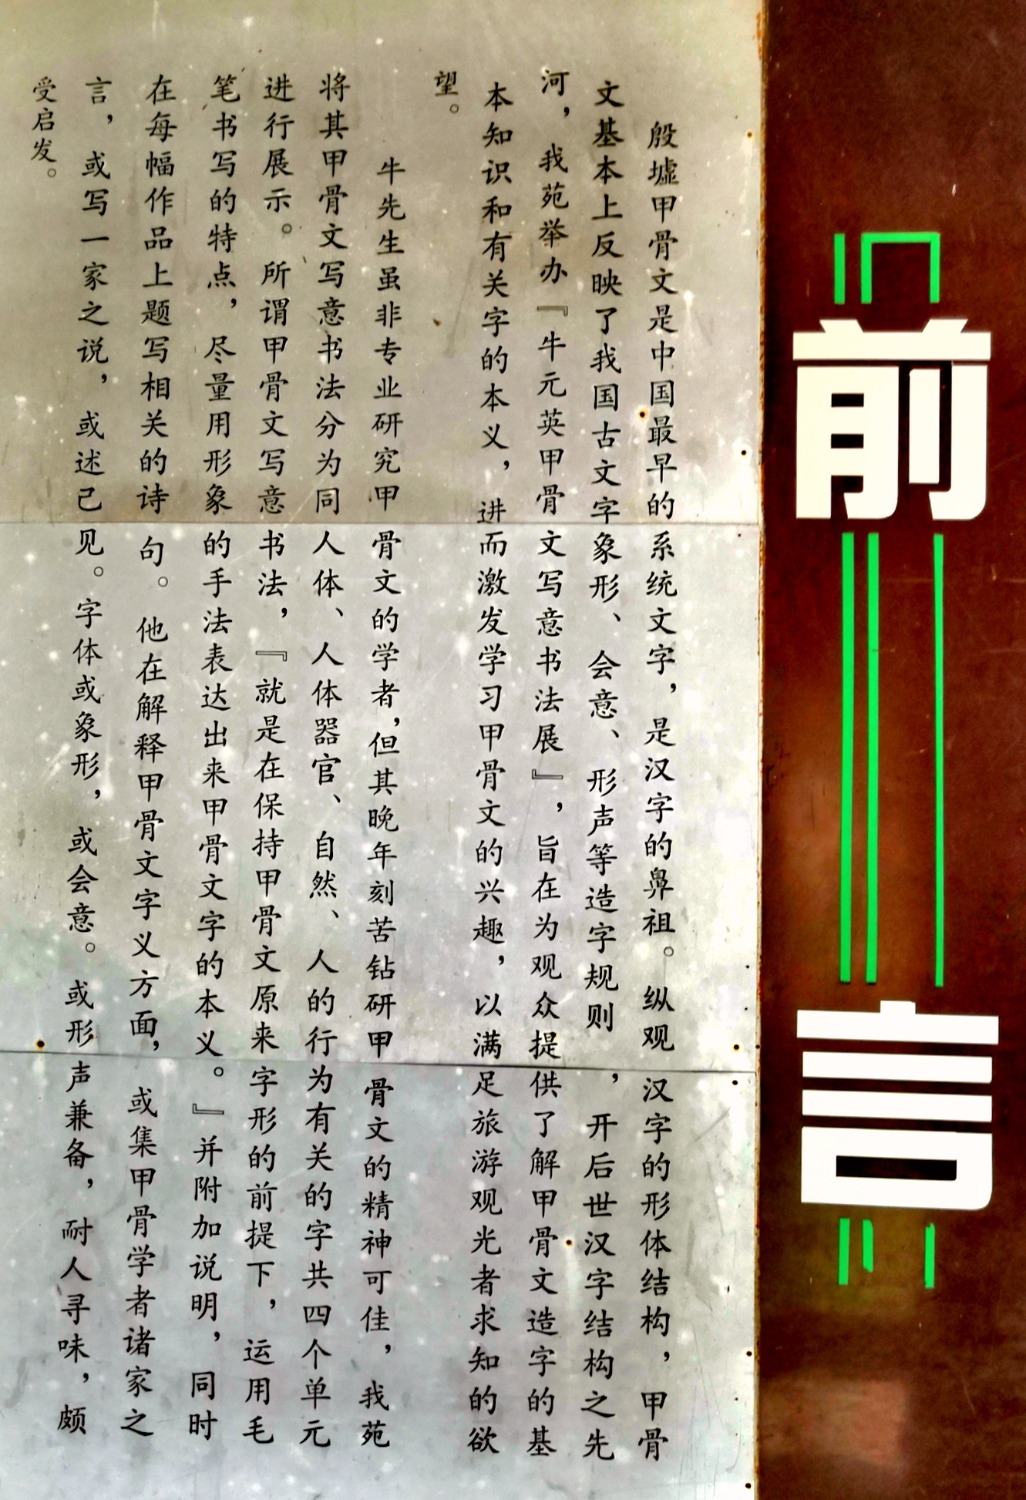 前言
殷墟甲骨文是中国最早的系统文字，是汉字的鼻祖。纵观汉字的形体结构，甲骨
文基本上反映了我国古文字象形、会意、形声等造字规则，开后世汉字结构之先
河，我苑举办『牛元英甲骨文写意书法展』，旨在为观众提供了解甲骨文造字的基
本知识和有关字的本义，进而激发学习甲骨文的兴趣，以满足旅游观光者求知的欲
望。
牛先生虽非专业研究甲骨文的学者，但其晚年刻苦钻研甲骨文的精神可佳，我苑
将其甲骨文写意书法分为同人体、人体器官、自然、人的行为有关的字共四个单元
进行展示。所谓甲骨文写意书法，『就是在保持甲骨文原来字形的前提下，运用毛
笔书写的特点，尽量用形象的手法表达出来甲骨文字的本义。』并附加说明，同时
在每幅作品上题写相关的诗句。他在解释甲骨文字义方面，或集甲骨学者诸家之
言，或写一家之说，或述己见。字体或象形，或会意。或形声兼备，耐人寻味，颇
受启发。